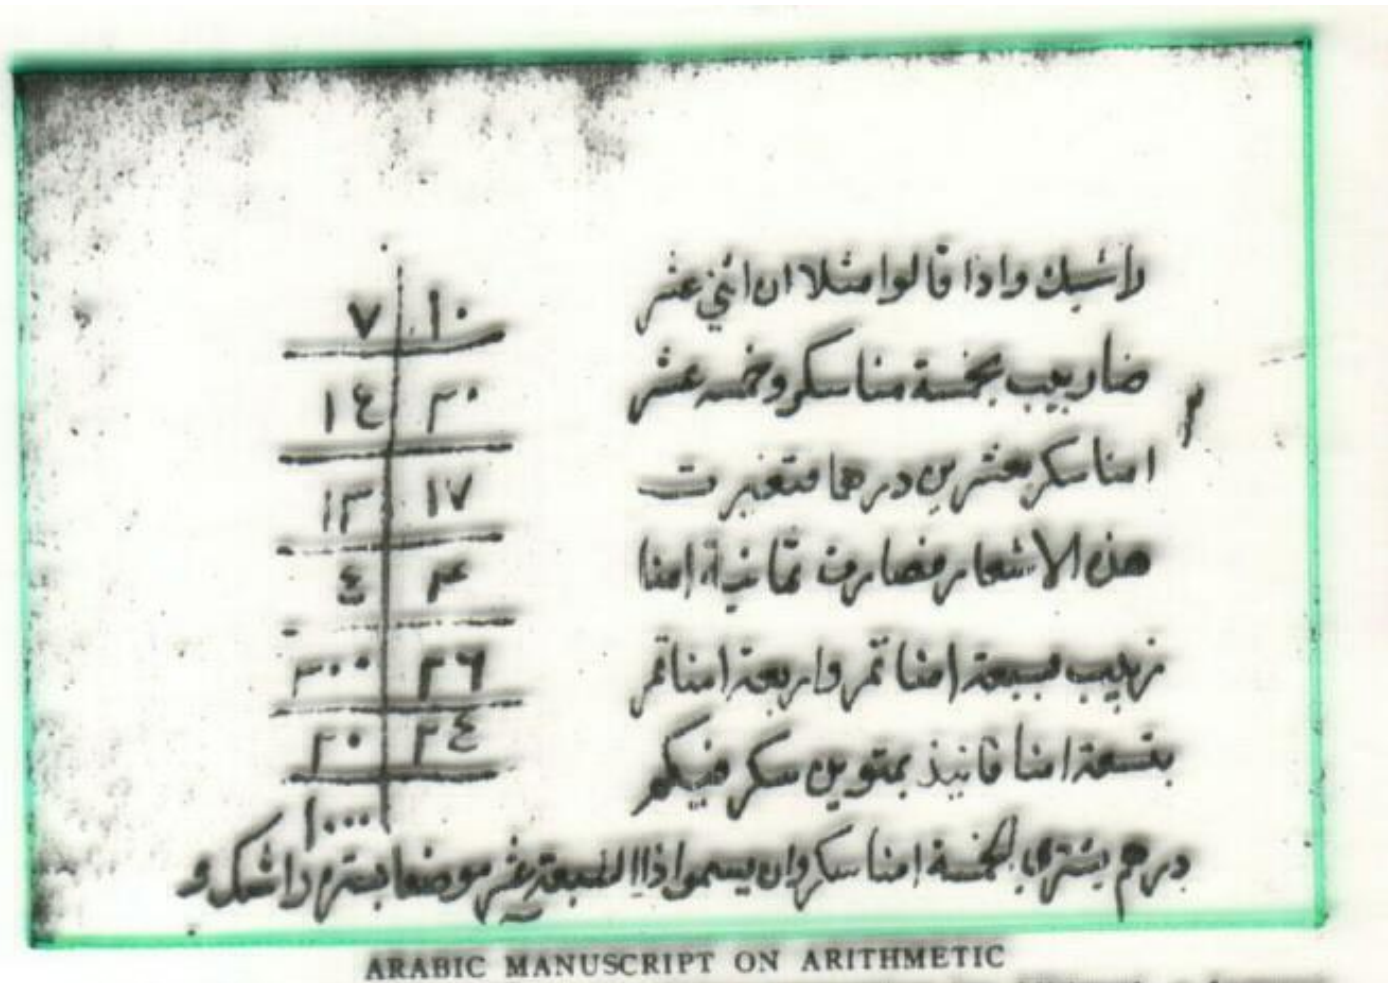 داشبك واذا قالوا مثلا ان اثني عشر
بخمسة منا سكر وخمسه عشر
امنا سكر بعشرين درهما فتغيرت
هذه الاسعار فصارت ثمانية امنا
زبيب بسبعة امنا تمر واربعة امنا تمر
بتسعة امنا فانيذ بمنوين سكر فبكم
درهم يشتري الخمسة امنا سكر وان يسموا
١٠ ٧
٢٠ ١٤
١٧ ١٣
٣ ٤
٢٦ ٣٠٠
٢٤ ٢٠
١٠٠٠
ARABIC MANUSCRIPT ON ARITHMETIC